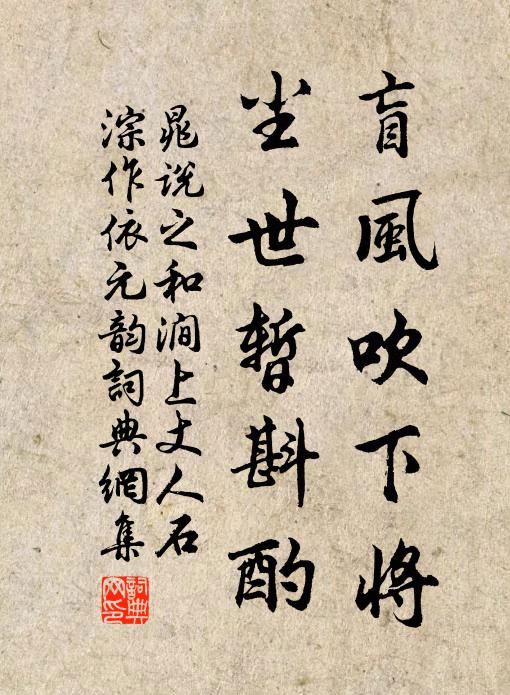 盲風吹下將
尘世暫斟酌
晁説之和澗上丈人石
淙作依元韵詞典網集
詞典网印